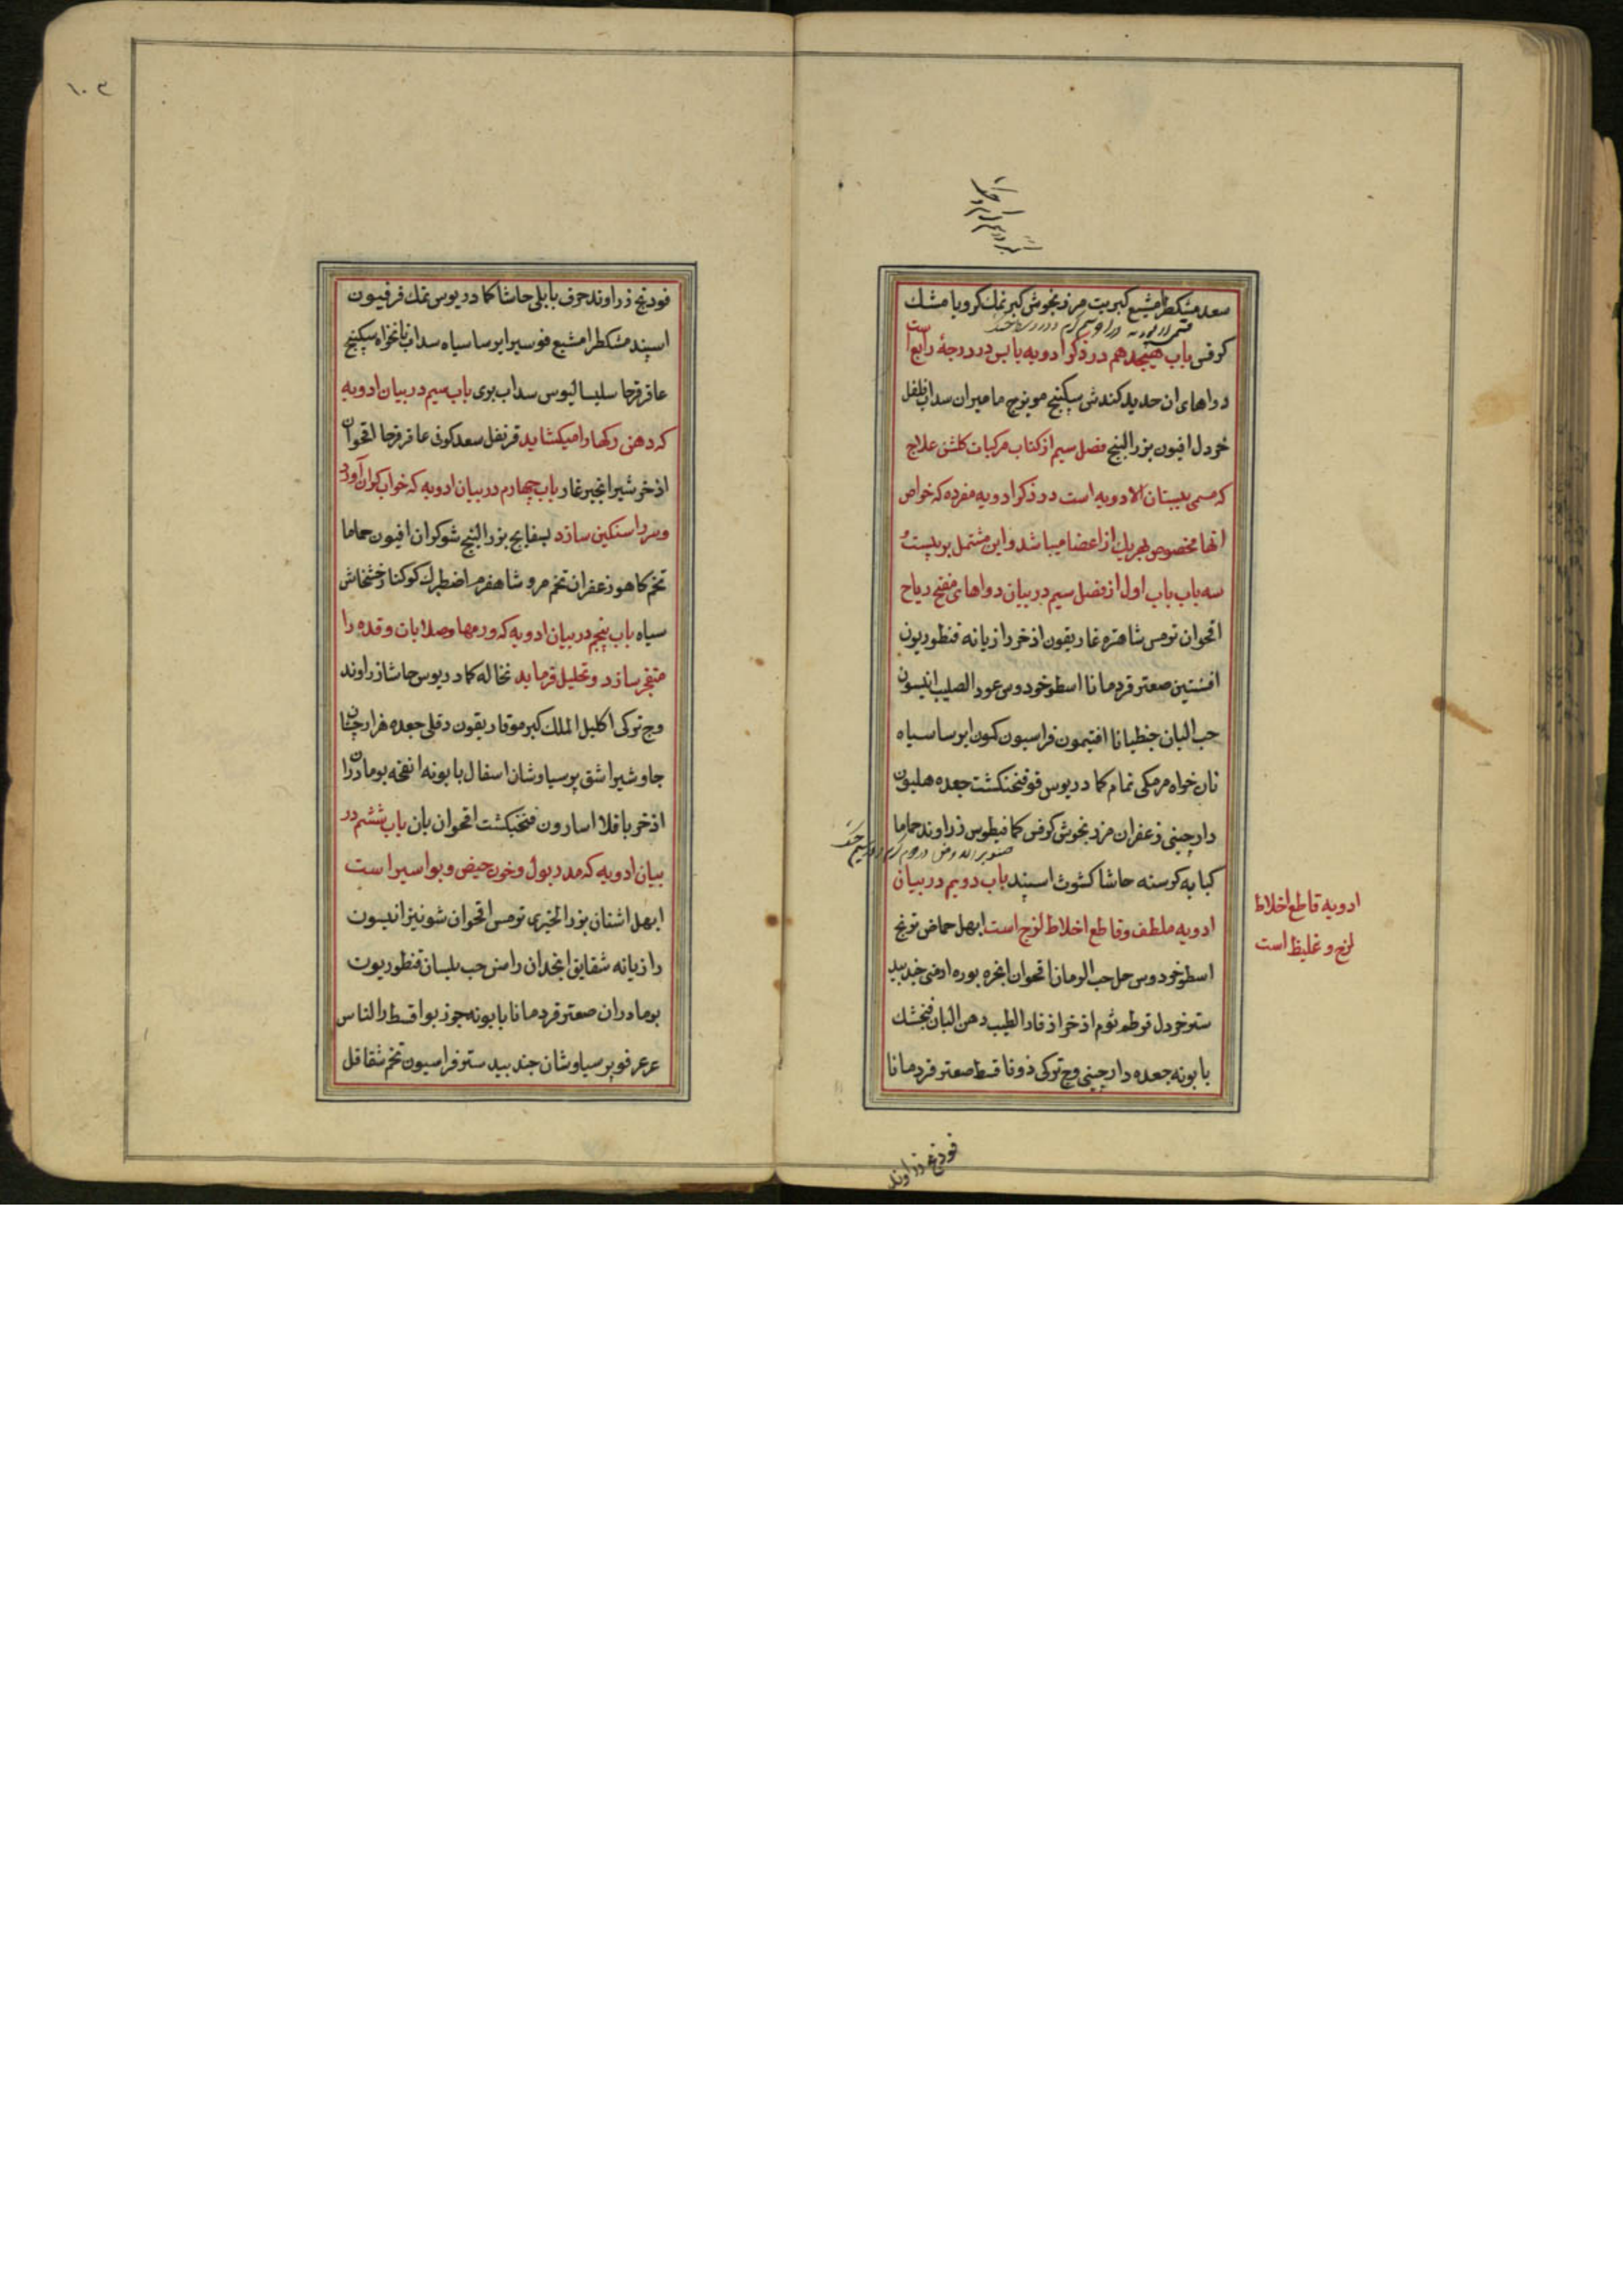 سعد مشکطرامشیع کبریت مرزنجوش کبر نمک کرویا مشک
کرفس باب هیجدهم در ذکر ادویه یابس در درجهٔ رابع است
دواهای ان حدید کندش سکبینج مویزج مامیران سداب فلفل
خردل افیون بزرالبنج فصل سیم از کتاب مرکبات کلشن علاج
که مسمی ببستان الادویه است در ذکر ادویه مفرده که خواص
انها مخصوص بهریک از اعضا میباشد و این مشتمل بر بیست و
سه باب باب اول از فصل سیم در بیان دواهای مفتح ریاح
اقحوان ترمس شاهتره غاریقون اذخر رازیانه قنطوریون
افسنتین صعتر قردمانا اسطوخودوس عود الصلیب انیسون
حب البان جنطیانا افتیمون فراسیون کمون ایرسا سیاه
نان خواه مرمکی نمام کمادریوس فو فنجنکشت جعده هلیون
دارچینی زعفران مرزنجوش کرفس کمافیطوس زراوند حماما
کبابه کرسنه حاشا کشوث اسپند باب دویم در بیان
ادویه ملطف و قاطع اخلاط لزج است ابهل حماض ترنج
اسطوخودوس حل حب الرمان اقحوان انجره بوره ارمنی جندبید
ستر خردل قرطم ثوم اذخر اذفار الطیب دهن البان فنجشک
بابونه جعده دارچینی وج ترکی زوفا قسط صعتر قردمانا
ادویه قاطع اخلاط
لزج و غلیظ است
فودنج زراوند
۱۰۳
فودنج زراوند حرف بابلی حاشا کمادریوس نمک فرفیون
اسپند مشکطرامشیع فو سیر ایرسا سیاه سداب نانخواه سکبینج
عاقرقرحا سلیسالیوس سداب بری باب سیم در بیان ادویه
که دهن رکها را میکشاید قرنفل سعد کوفی عاقرقرحا اقحوان
اذخر شیر انجیر غار باب چهارم در بیان ادویه که خواب کران آورد
و سر را سنکین سازد بسفایج بزرالبنج شوکران افیون حماما
تخم کاهو زعفران تخم مرو شاهفرم اضطرک کوکنار خشخاش
سیاه باب پنجم در بیان ادویه که ورمها و صلابات و قده را
منفجر سازد و تحلیل فرماید نخاله کمادریوس حاشا زراوند
وج ترکی اکلیل الملک کبر مو قاریقون دفلی جعده هزارچشان
جاوشیر اشق پرسیاوشان اسفال بابونه انفحه بومادران
اذخر باقلا اسارون فنجنکشت اقحوان بان باب ششم در
بیان ادویه که مدر بول و خون حیض و بواسیر است
ابهل اشنان بزر الخیری ترمس اقحوان شونیز انیسون
رازیانه شقایق انجدان راسن حب بلسان قنطوریون
بومادران صعتر قردمانا بابونه جوز بوا قسط رالناس
عرعر فو پرسیاوشان جندبیدستر فراسیون تخم شقاقل